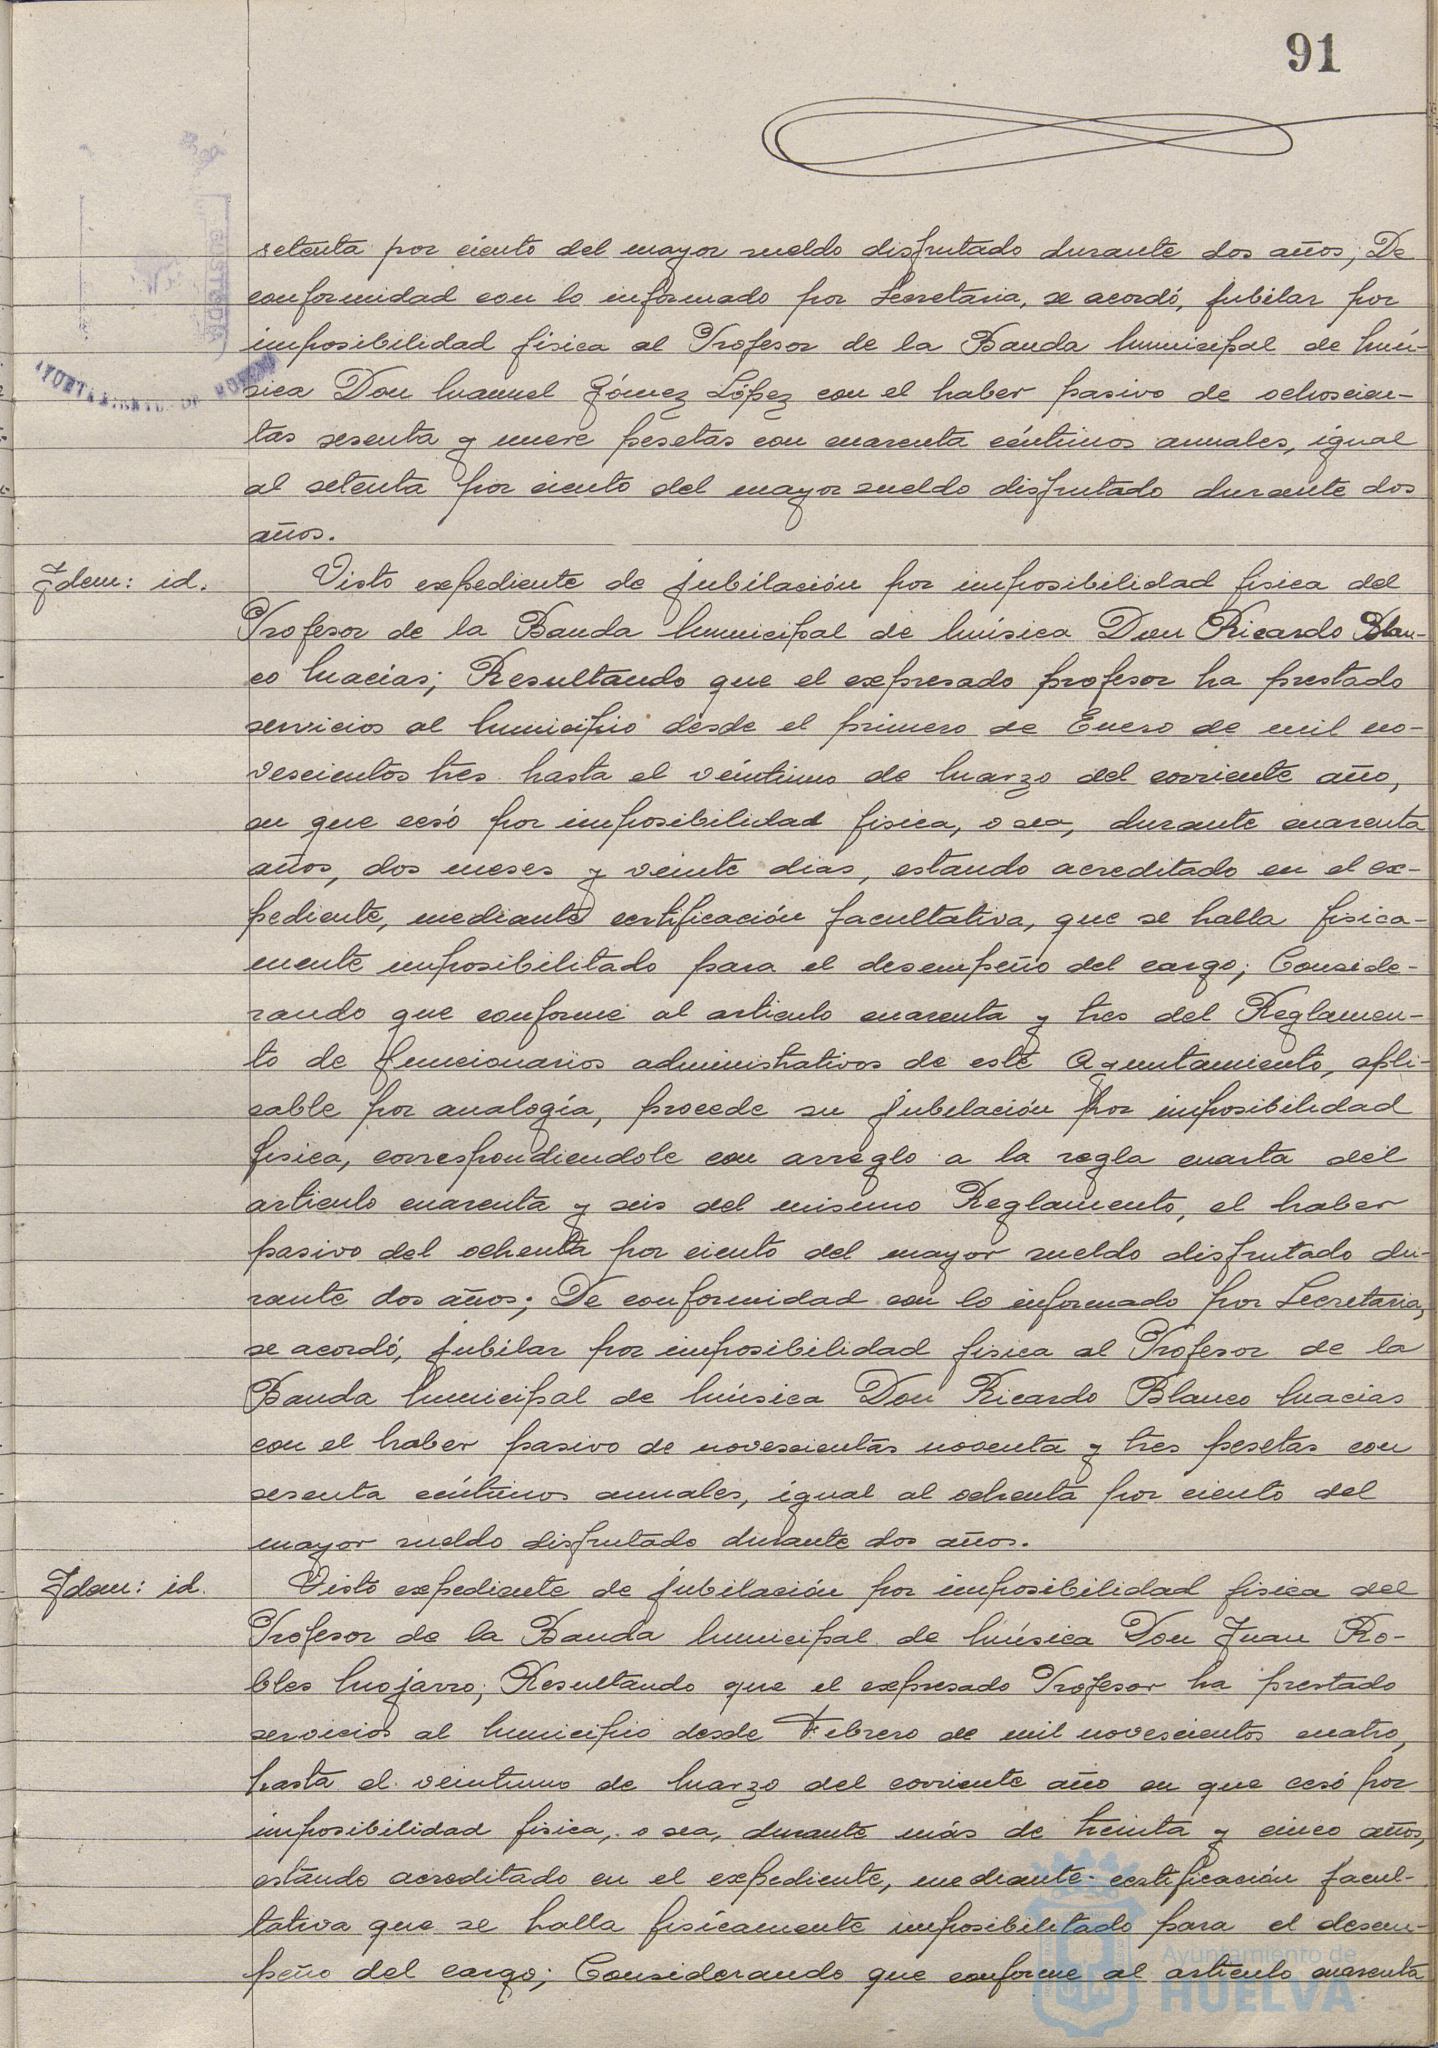 91
setenta por ciento del mayor sueldo disfrutado durante dos años; De
conformidad con lo informado por Secretaria, se acordó, jubilar por
imposibilidad fisica al Profesor de la Banda Municipal de Mú-
sica Don Manuel Gómez López con el haber pasivo de ochocien-
tas sesenta y nueve pesetas con cuarenta céntimos anuales, igual
al setenta por ciento del mayor sueldo disfrutado durante dos
años.
Idem: id. Visto expediente de jubilación por imposibilidad fisica del
Profesor de la Banda Municipal de Música Don Ricardo Blan-
co Macías; Resultando que el expresado profesor ha prestado
servicios al Municipio desde el primero de Enero de mil no-
vescientos tres hasta el veintiuno de Marzo del corriente año,
en que cesó por imposibilidad fisica, o sea, durante cuarenta
años, dos meses y veinte dias, estando acreditado en el ex-
pediente, mediante certificación facultativa, que se halla fisica-
mente imposibilitado para el desempeño del cargo; Conside-
rando que conforme al articulo cuarenta y tres del Reglamen-
to de funcionarios administrativos de este Ayuntamiento, apli-
cable por analogía, procede su jubilación por imposibilidad
fisica, correspondiendole con arreglo a la regla cuarta del
articulo cuarenta y seis del mismo Reglamento, el haber
pasivo del ochenta por ciento del mayor sueldo disfrutado du-
rante dos años; De conformidad con lo informado por Secretaria,
se acordó, jubilar por imposibilidad fisica al Profesor de la
Banda Municipal de Música Don Ricardo Blanco Macias
con el haber pasivo de novescientas noventa y tres pesetas con
sesenta céntimos anuales, igual al ochenta por ciento del
mayor sueldo disfrutado durante dos años.
Idem: id. Visto expediente de jubilación por imposibilidad fisica del
Profesor de la Banda Municipal de Música Don Juan Ro-
bles Mojarro; Resultando que el expresado Profesor ha prestado
servicios al Municipio desde Febrero de mil novescientos cuatro,
hasta el veintiuno de Marzo del corriente año en que cesó por
imposibilidad fisica, o sea, durante más de treinta y cinco años,
estando acreditado en el expediente, mediante certificación facul-
tativa que se halla fisícamente imposibilitado para el desem-
peño del cargo; Considerando que conforme al articulo cuarenta
Ayuntamiento de
HUELVA